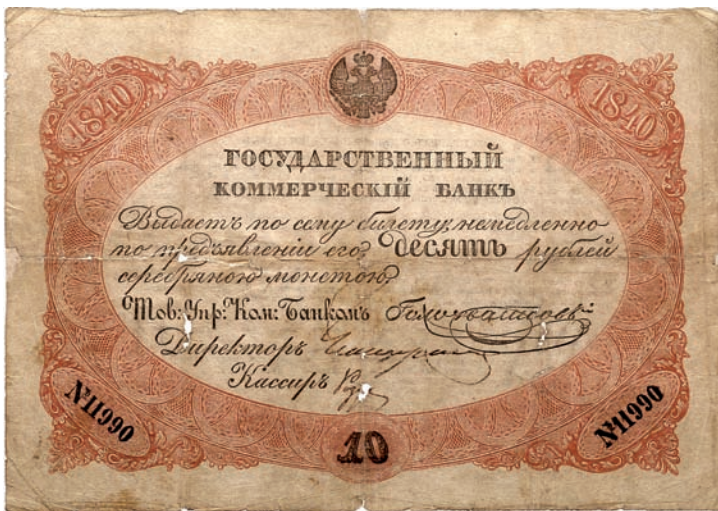 1840 1840
ГОСУДАРСТВЕННЫЙ
КОММЕРЧЕСКІЙ БАНКЪ
Выдаетъ по сему билету, немедленно
по предъявленіи его, десять рублей
серебряною монетою.
Тов: Упр: Ком: Банкомъ
Директоръ
Кассиръ
№11990 №11990
10